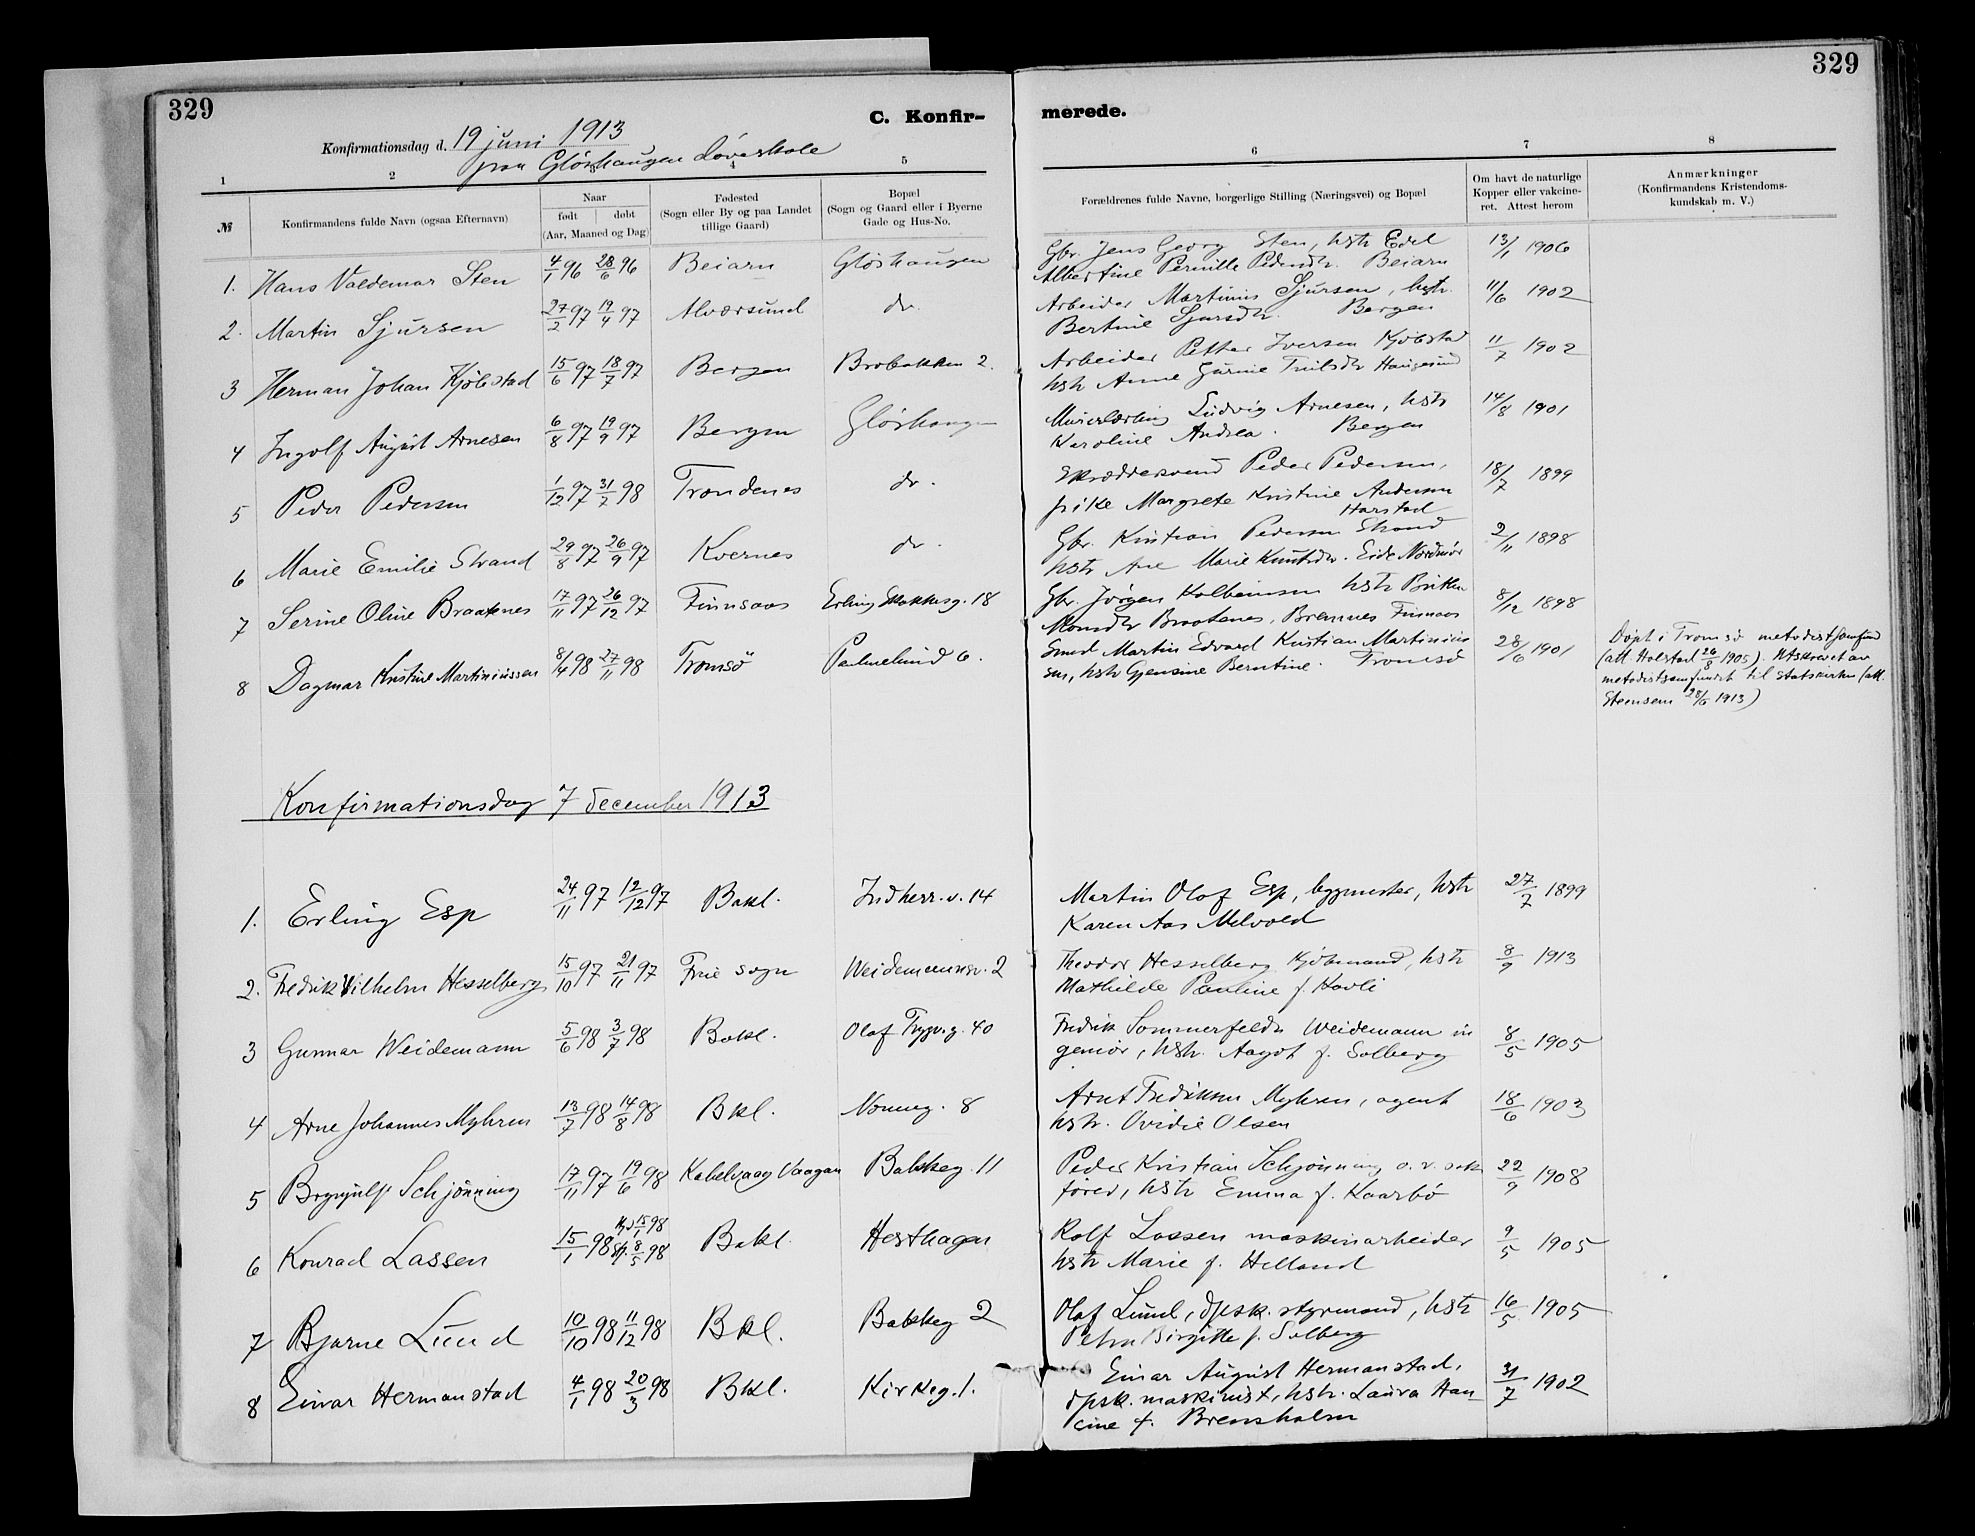 329
329
C. Konfir-
merede.
Konfirmationsdag d. 19 juni 1913
paa Glöshaugen döveskole
1 2 3 4 5 6 7 8
№
Konfirmandens fulde Navn (ogsaa Efternavn)
Naar
født døbt
(Aar, Maaned og Dag)
Fødested
(Sogn eller By og paa Landet
tillige Gaard)
Bopæl
(Sogn og Gaard eller i Byerne
Gade og Hus-No.
Forældrenes fulde Navne, borgerlige Stilling (Næringsvei) og Bopæl
Om havt de naturlige
Kopper eller vakcine-
ret. Attest herom
Anmærkninger
(Konfirmandens Kristendoms-
kundskab m. V.)
1. Hans Valdemar Sten 4/1 96 28/6 96 Beiarn Glöshaugen
Gbr. Jens Georg Sten, hstr Edel 13/1 1906
Albertine Pernille Pedersdtr. Beiarn
2. Martin Sjursen 27/2 97 19/4 97 Alversund do.
Arbeider Martinius Sjursen, hstr. 11/6 1902
Bertine Sjursdtr. Bergen
3 Herman Johan Kjölstad 15/6 97 18/7 97 Bergen Brobakken 2.
Arbeider Petter Iversen Kjölstad 11/7 1902
hstr Anne Gurine Haugesund
4 Ingolf August Arnesen 6/8 97 19/9 97 Bergen Glöshaugen
Murerlærling Ludvig Arnesen, hstr 14/8 1901
Karoline Andrea. Bergen
5 Peder Pedersen 1/12 97 31/7 98 Trondenes do.
Skræddersvend Peder Pedersen, 18/7 1899
pike Margrete Kristine Andersen
Harstad
6 Marie Emilie Strand 29/8 97 26/9 97 Kvernes do.
Gbr. Kristian Pedersen Strand 2/11 1898
hstr Ane Marie Knutsdtr. Eide Nordmör
7 Serine Oline Braatenes 17/11 97 26/12 97 Finnsaas Erling Skakkesg. 18
Gbr. Jörgen Kolbeinsen hstr 8/12 1898
Monsdtr Braatenes, Bremnes Finnaas
8 Dagmar Kristine Martiniussen 8/4 98 27/11 98 Tromsö Palmelund 6.
Smed Martin Edvard Kristian Martinius 28/6 1901
sen, hstr Gjensine Berntine. Tromsö
Döpt i Tromsö metodistsamfund
(att. Halstad 26/8 1905). Utskrevet av
metodistsamfundet til statskirken (att.
Steensen 28/6 1913)
Konfirmationsdag 7 december 1913
1. Erling Esp 24/11 97 12/12 97 Bakl. Indherr.v. 14
Martin Olaf Esp, bygmester, hstr 27/7 1899
Karen Aas Melvold
2. Fredrik Vilhelm Hesselberg 15/10 97 21/11 97 Frue sogn Weidemannsv. 2
Theodor Hesselberg Kjöbmand, hstr 8/9 1913
Mathilde Pauline f. Havli
3 Gunnar Weidemann 5/6 98 3/7 98 Bakl. Olaf Trygv.g. 40
Fredrik Sommerfeldt Weidemann in 8/5 1905
geniör, hstr. Aagot f. Solberg
4 Arne Johannes Myhren 13/7 98 14/8 98 Bkl. Nonneg. 8
Arnt Fredriksen Myhren, agent 18/6 1903
hstr. Ovidie Olsen
5 Brynjulf Schjönning 17/11 97 19/6 98 Kabelvaag Vaagan Bakkeg. 11
Peder Kristian Schjönning o.r. sak 22/9 1908
förer, hstr Emma f. Kaarbö
6 Konrad Lassen 15/1 98 Hjd 15/1 98 Bakl. Hesthagen
St. 8/5 98
Rolf Lassen maskinarbeider 9/5 1905
hstr Marie f. Helland
7 Bjarne Lund 10/10 98 11/12 98 Bkl. Bakkeg 2
Olaf Lund, dpsk. styrmand, hstr 16/5 1905
Petra Birgitte f. Solberg
8 Einar Hermanstad 4/1 98 20/3 98 Bkl. Kirkeg. 1.
Einar August Hermanstad, 31/7 1902
dpsk. maskinist, hstr. Laura Han
sine f. Brensholm